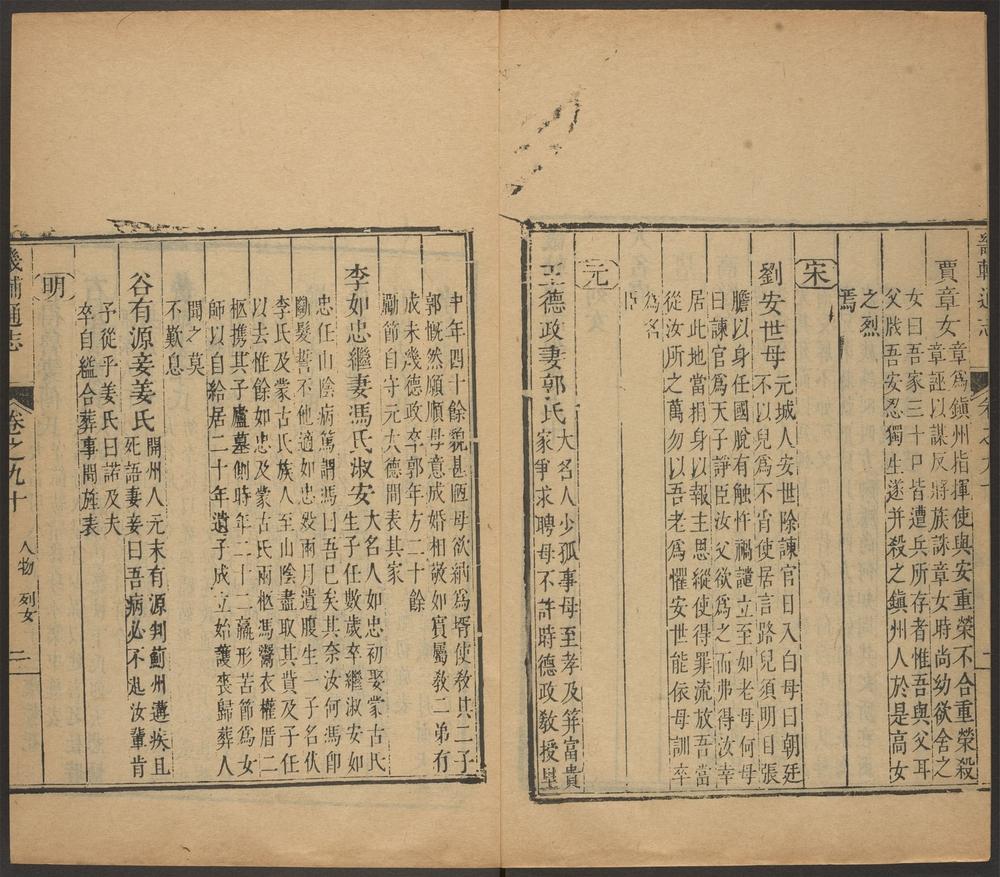 賈章女章爲鎮州指揮使與安重榮不合重榮殺
章誣以謀反將族誅章女時尚幼欲舍之
女曰吾家三十口皆遭兵所存者惟吾與父耳
父戕吾安忍獨生遂并殺之鎮州人於是高女
之烈
焉
宋
劉安世母元城人安世除諫官日入白母曰朝廷
不以兒爲不肖使居言路兒須明目張
膽以身任國脫有触忤禍譴立至如老母何母
曰諫官爲天子諍臣汝父欲爲之而弗得汝幸
居此地當捐身以報主恩縱使得罪流放吾當
從汝所之萬勿以吾老爲懼安世能依母訓卒
爲名
臣
元
王德政妻郭氏大名人少孤事母至孝及筓富貴
家爭求聘母不許時德政教授里
中年四十餘貌甚陋母欲納爲壻使教其二子
郭慨然願順母意成婚相敬如賓屬教二弟有
成未幾德政卒郭年方二十餘
勵節自守元大德間表其家
李如忠繼妻馮氏淑安大名人如忠初娶蒙古氏
生子任數歲卒繼淑安如
忠任山陰病篤謂馮曰吾已矣其奈汝何馮卽
斷髮誓不他適如忠歿兩月遺腹生一子名伏
李氏及蒙古氏族人至山陰盡取其貲及子任
以去惟餘如忠及蒙古氏兩柩馮鬻衣權厝二
柩攜其子廬墓側時年二十二羸形苦節爲女
師以自給居二十年遺子成立始護喪歸葬人
聞之莫
不歎息
谷有源妾姜氏開州人元末有源判薊州遘疾且
死語妻妾曰吾病必不起汝輩肯
予從乎姜氏曰諾及夫
卒自縊合葬事聞旌表
明
畿輔通志
卷之九十
人物 列女
二